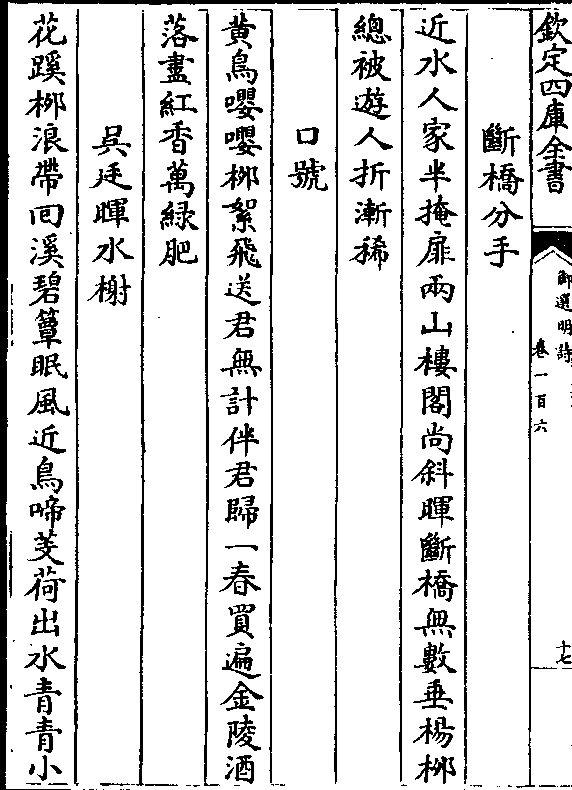 欽定四庫全書
御選明詩
卷一百六
十七
斷橋分手
近水人家半掩扉兩山樓閣尚斜暉斷橋無數垂楊柳
總被遊人折漸稀
口號
黄鳥嚶嚶柳絮飛送君無計伴君歸一春買遍金陵酒
落盡紅香萬緑肥
吳廷暉水榭
花蹊柳浪帶回溪碧簟眠風近鳥啼芰荷出水青青小